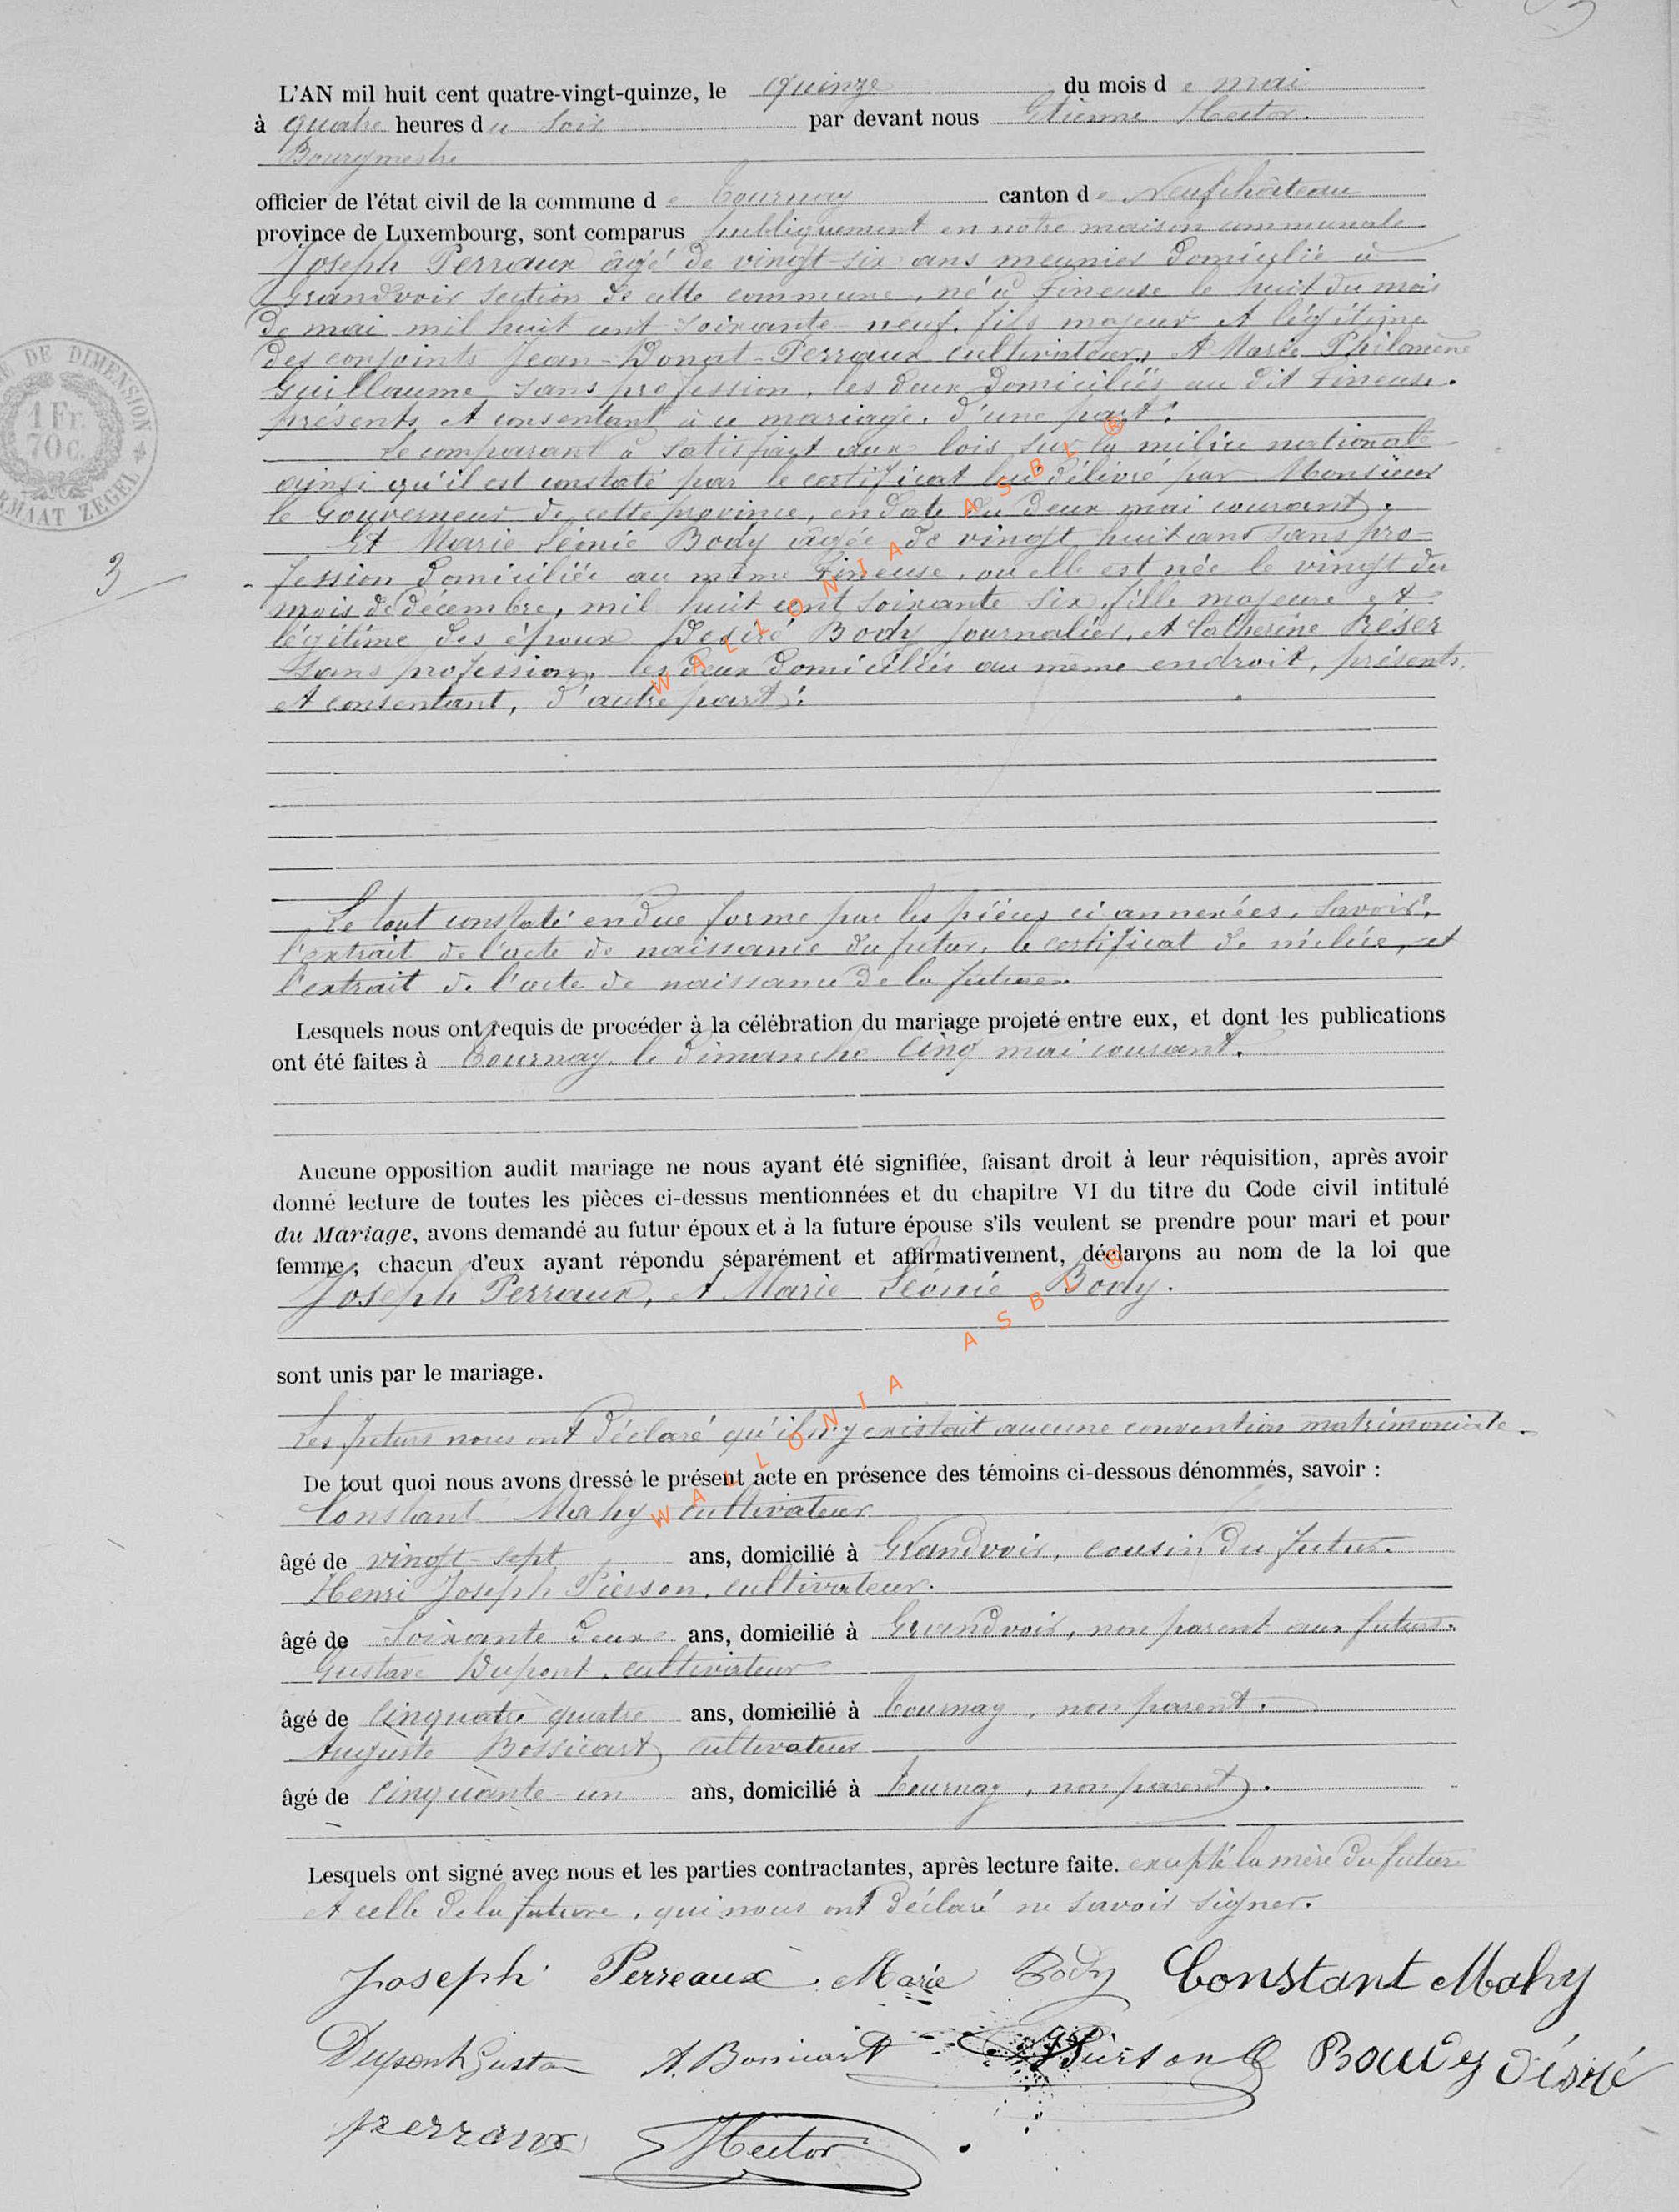 L'AN mil huit cent quatre-vingt-quinze, le quinze du mois de mai
à quatre heures du soir par devant nous Etienne Hector.
Bourgmestre
officier de l'état civil de la commune de Tournay canton de Neufchâteau
province de Luxembourg, sont comparus publiquement en notre maison communale
Joseph Perraux âgé de vingt-six ans meunier domicilié à
Grandvoir section de cette commune, né à Fineuse le huit du mois
de mai mil huit cent soixante-neuf, fils majeur et légitime
des conjoints Jean-Donat-Perraux cultivateur, et Marie Philomène
Guillaume, sans profession, les deux domiciliés au dit Fineuse.
présents et consentant à ce mariage, d'une part:
Le comparant a satisfait aux lois sur la milice nationale
ainsi qu'il est constaté par le certificat lui délivré par Monsieur
le Gouverneur de cette province, en date du deux mai courant.
Et Marie Léonie Body âgée de vingt huit ans sans pro=
fession domiciliée au même Fineuse, où elle est née le vingt du
mois de décembre, mil huit cent soixante six, fille majeure et
légitime des époux Desiré Body journalier, et Catherine Réser
sans profession, les deux domiciliés au même endroit, présents,
et consentant, d'autre part:
Le tout constaté en due forme par les pièces ci annexées, savoir:
l'extrait de l'acte de naissance du futur, le certificat de milice, et
l'extrait de l'acte de naissance de la future.
Lesquels nous ont requis de procéder à la célébration du mariage projeté entre eux, et dont les publications
ont été faites à Tournay, le dimanche cinq mai courant.
Aucune opposition audit mariage ne nous ayant été signifiée, faisant droit à leur réquisition, après avoir
donné lecture de toutes les pièces ci-dessus mentionnées et du chapitre VI du titre du Code civil intitulé
du Mariage, avons demandé au futur époux et à la future épouse s'ils veulent se prendre pour mari et pour
femme; chacun d'eux ayant répondu séparément et affirmativement, déclarons au nom de la loi que
Joseph Perraux, et Marie Léonie Body.
sont unis par le mariage.
Les futurs nous ont déclaré qu'il n'y existait aucune convention matrimoniale.
De tout quoi nous avons dressé le présent acte en présence des témoins ci-dessous dénommés, savoir :
Constant Mahy, cultivateur
âgé de vingt-sept ans, domicilié à Grandvoir, cousin du futur.
Henri Joseph Pierson, cultivateur.
âgé de soixante deux ans, domicilié à Grandvoir, non parent aux futurs.
Gustave Dupont, cultivateur
âgé de cinquante quatre ans, domicilié à Tournay, non parent.
Auguste Bossicart cultivateur
âgé de cinquante-un ans, domicilié à Tournay, non parent.
Lesquels ont signé avec nous et les parties contractantes, après lecture faite. excepté la mère du futur
et celle de la future, qui nous ont déclaré ne savoir signer.
Joseph Perreaux Marie Body Constant Mahy
Dupont Gustav A. Bossicart Pierson Body Désiré
perraux Hector
DE DIMENSION
1 Fr.
70 c.
RMAAT ZEGEL
3
WALLONIA ASBL ®
WALLONIA ASBL ®